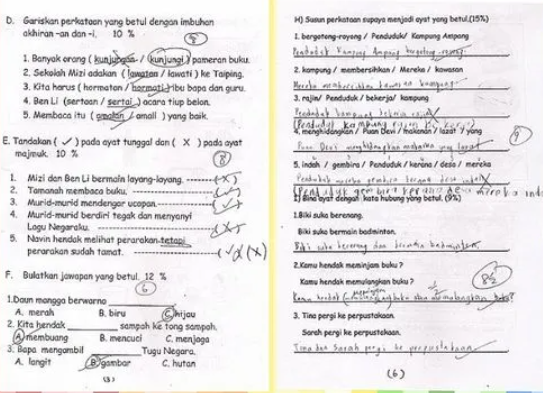 D. Gariskan perkataan yang betul dengan imbuhan
akhiran -an dan -i. 10 %
1. Banyak orang ( kunjungan / kunjungi ) pameran buku.
2. Sekolah Mizi adakan ( lawatan / lawati ) ke Taiping.
3. Kita harus ( hormatan / hormati ) ibu bapa dan guru.
4. Ben Li (sertaan / sertai ) acara tiup belon.
5. Membaca itu ( amalan / amali ) yang baik.
E. Tandakan ( ✓ ) pada ayat tunggal dan ( X ) pada ayat
majmuk. 10 %
8
1. Mizi dan Ben Li bermain layang-layang. (X)
2. Tamanah membaca buku. (✓)
3. Murid-murid mendengar ucapan. (✓)
4. Murid-murid berdiri tegak dan menyanyi
Lagu Negaraku. (X)
5. Navin hendak melihat perarakan tetapi
perarakan sudah tamat. (X)
F. Bulatkan jawapan yang betul. 12 %
6
1.Daun mangga berwarna
A. merah B. biru C. hijau
2. Kita hendak sampah ke tong sampah.
A. membuang B. mencuci C. menjaga
3. Bapa mengambil Tugu Negara.
A. langit B. gambar C. hutan
(5)
H) Susun perkataan supaya menjadi ayat yang betul.(15%)
1. bergotong-royong / Penduduk/ Kampung Ampang
Penduduk Kampung Ampang bergotong-royong.
2. kampung / membersihkan / Mereka / kawasan
Mereka membersihkan kawasan kampung
3. rajin/ Penduduk / bekerja/ kampung
Penduduk kampung bekerja rajin
(Penduduk kampung rajin bekerja)
4. menghidangkan / Puan Devi / makanan / lazat / yang
Puan Devi menghidangkan makanan yang lazat
9
5. indah / gembira / Penduduk / kerana / desa / mereka
Penduduk mereka gembira kerana desa indah
(Penduduk gembira kerana desa mereka ind
I) Bina ayat dengan kata hubung yang betul. (9%)
1.Biki suka berenang.
Biki suka bermain badminton.
Biki suka berenang dan bermain badminton.
2.Kamu hendak meminjam buku ?
Kamu hendak memulangkan buku ?
8½
Kamu hendak meminjam buku atau memulangkan buku?
3. Tina pergi ke perpustakaan.
Sarah pergi ke perpustakaan.
Tina dan Sarah pergi ke perpustakaan
(6)